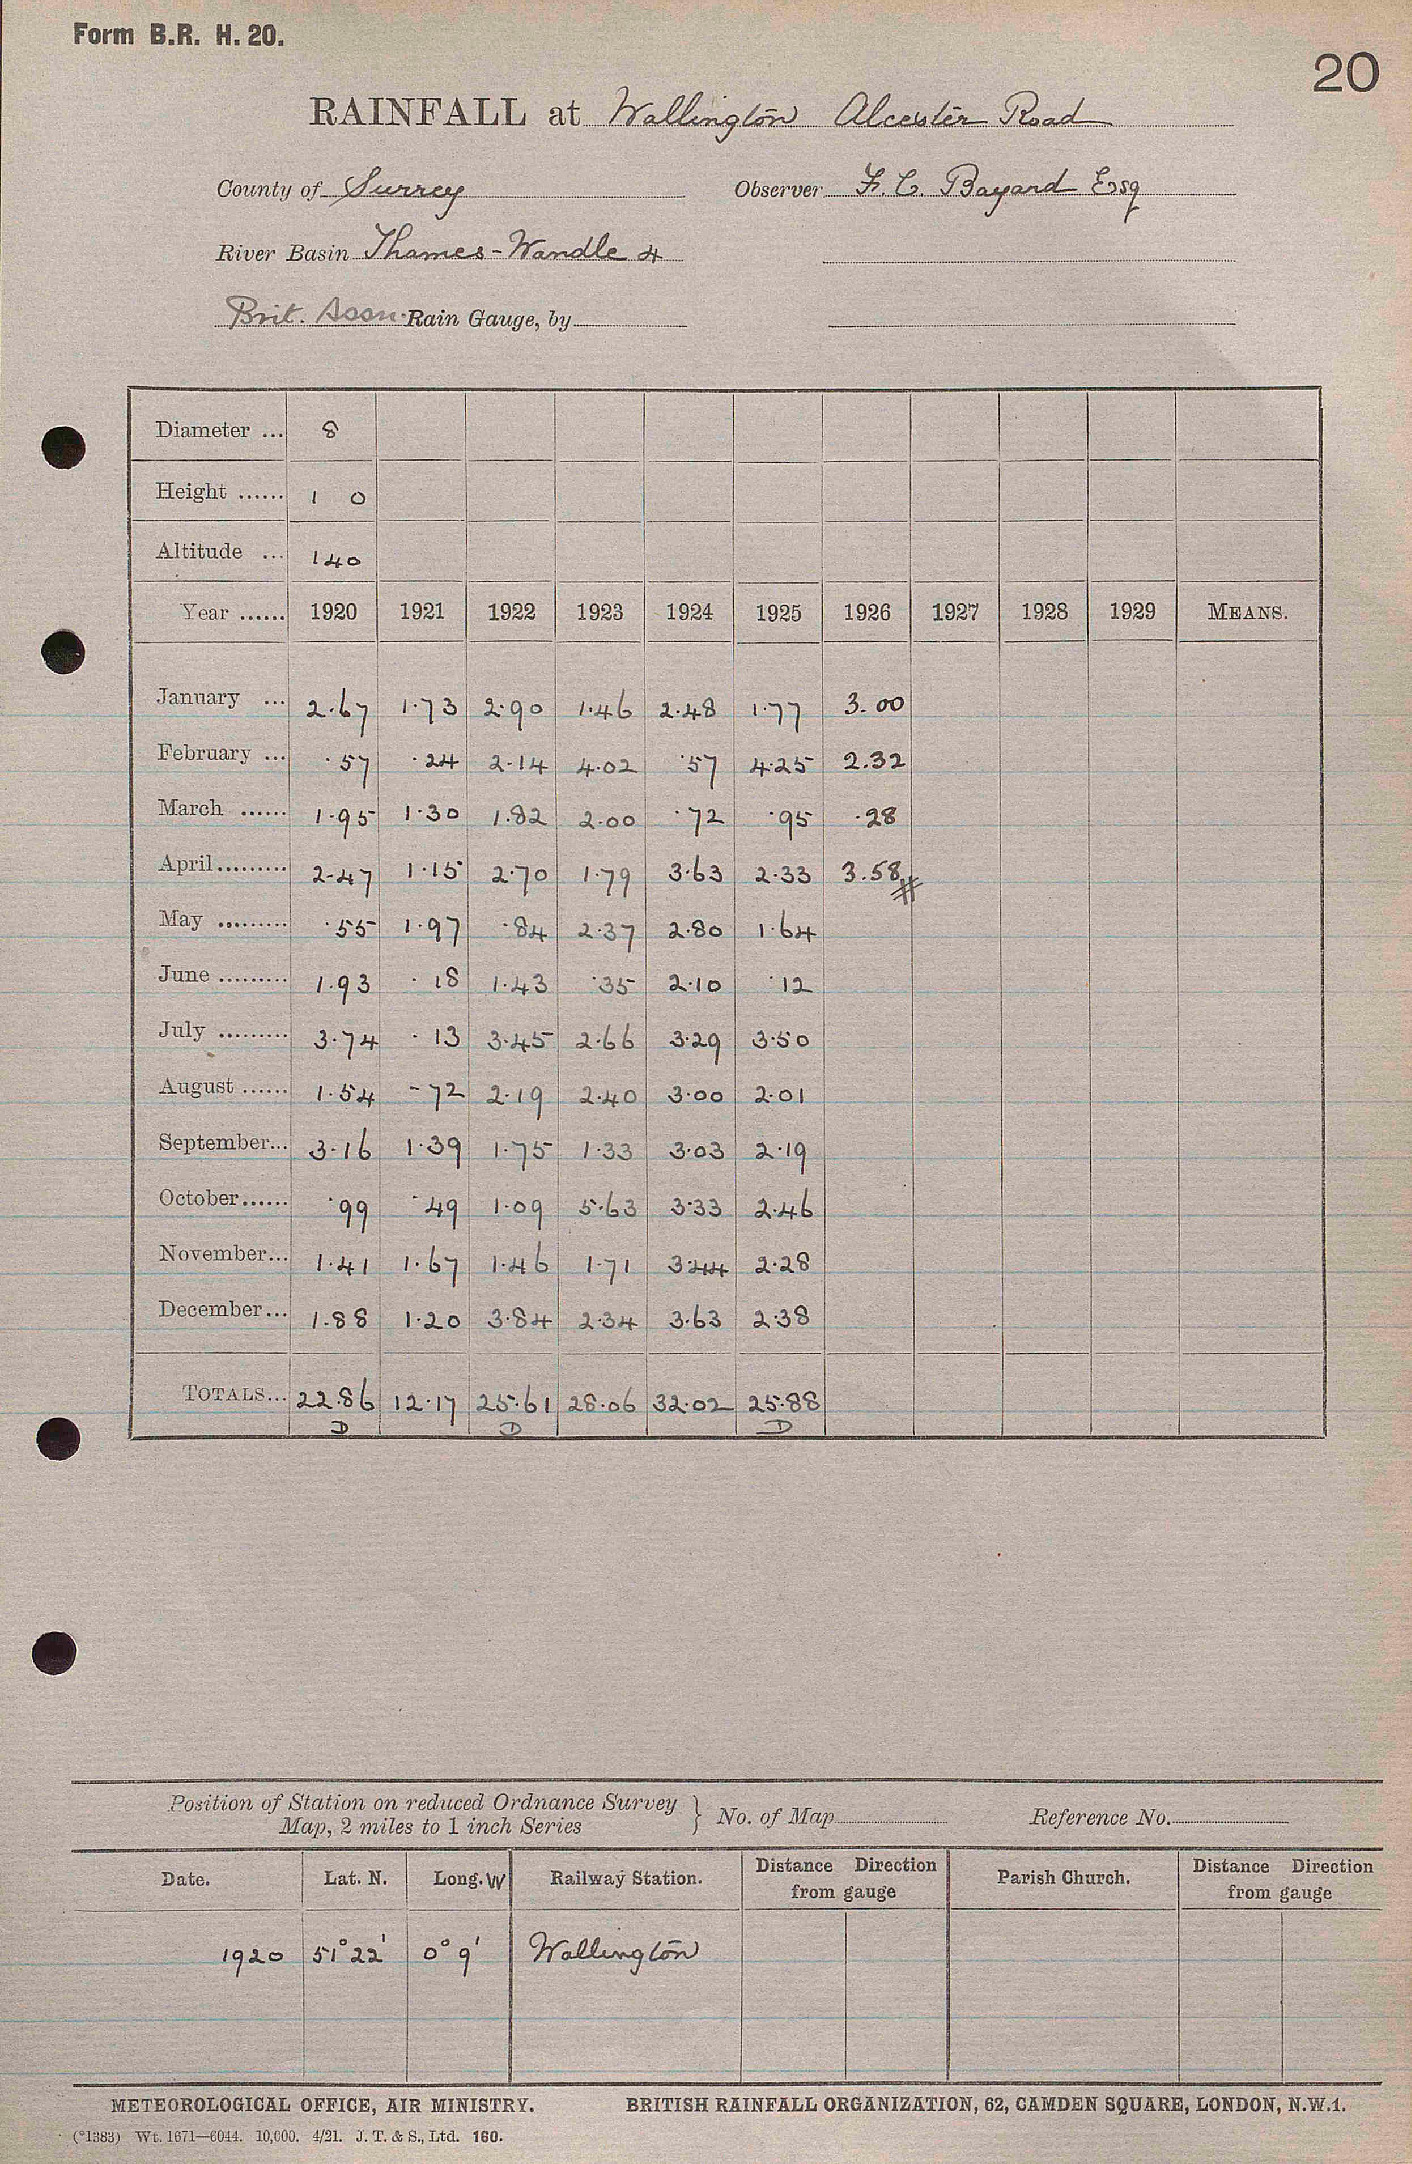 Form B.R. H. 20.
20
RAINFALL at Wallington Alcester Road
County of Surrey Observer F. C. Bayard Esq
River Basin Thames-Wandle 4
Brit. Assn. Rain Gauge, by
Diameter ... 8
Height ...... 1 0
Altitude ... 140
Year ...... 1920 1921 1922 1923 1924 1925 1926 1927 1928 1929 MEANS.
January ... 2.67 1.73 2.90 1.46 2.48 1.77 3.00
February ... .57 .24 2.14 4.02 .57 4.25 2.32
March ...... 1.95 1.30 1.82 2.00 .72 .95 .28
April......... 2.47 1.15 2.70 1.79 3.63 2.33 3.58 #
May ......... .55 1.97 .84 2.37 2.80 1.64
June ......... 1.93 .18 1.43 .35 2.10 .12
July ......... 3.74 .13 3.45 2.66 3.29 3.50
August ...... 1.54 .72 2.19 2.40 3.00 2.01
September... 3.16 1.39 1.75 1.33 3.03 2.19
October...... .99 .49 1.09 5.63 3.33 2.46
November... 1.41 1.67 1.46 1.71 3.44 2.28
December... 1.88 1.20 3.84 2.34 3.63 2.38
TOTALS... 22.86 12.17 25.61 28.06 32.02 25.88
D D D
Position of Station on reduced Ordnance Survey
Map, 2 miles to 1 inch Series } No. of Map Reference No.
Date. Lat. N. Long. W Railway Station. Distance Direction from gauge Parish Church. Distance Direction from gauge
1920 51° 22' 0° 9' Wallington
METEOROLOGICAL OFFICE, AIR MINISTRY. BRITISH RAINFALL ORGANIZATION, 62, CAMDEN SQUARE, LONDON, N.W.1.
(*1383) Wt. 1671—6044. 10,000. 4/21. J. T. & S., Ltd. 160.